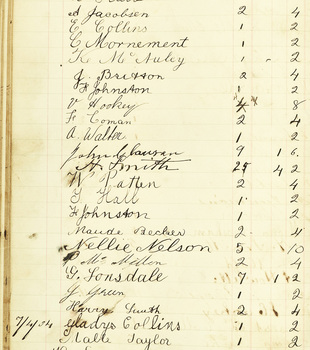 J Jacobsen 2 4
E Collins 1 2
C Mornement 1 2
K McNuley 1 - 2
J. Britton 2 4
F Johnston 1 2
V Hookey 4 8
F Coman 2 4
A. Walter 1 2
John Clausen 9 1 6.
A. Smith 25 4 2
W Patten 2 4
Hall 1 2
F Johnston 1 2
Maude Becker 2 4
Nellie Nelson 5 10
McMillon 2 4
G. Lonsdale 7 1 2
G Green 1 2
Harry Smith 2 4
7/4/04 Gladys Collins 1 2
Taylor 1 2